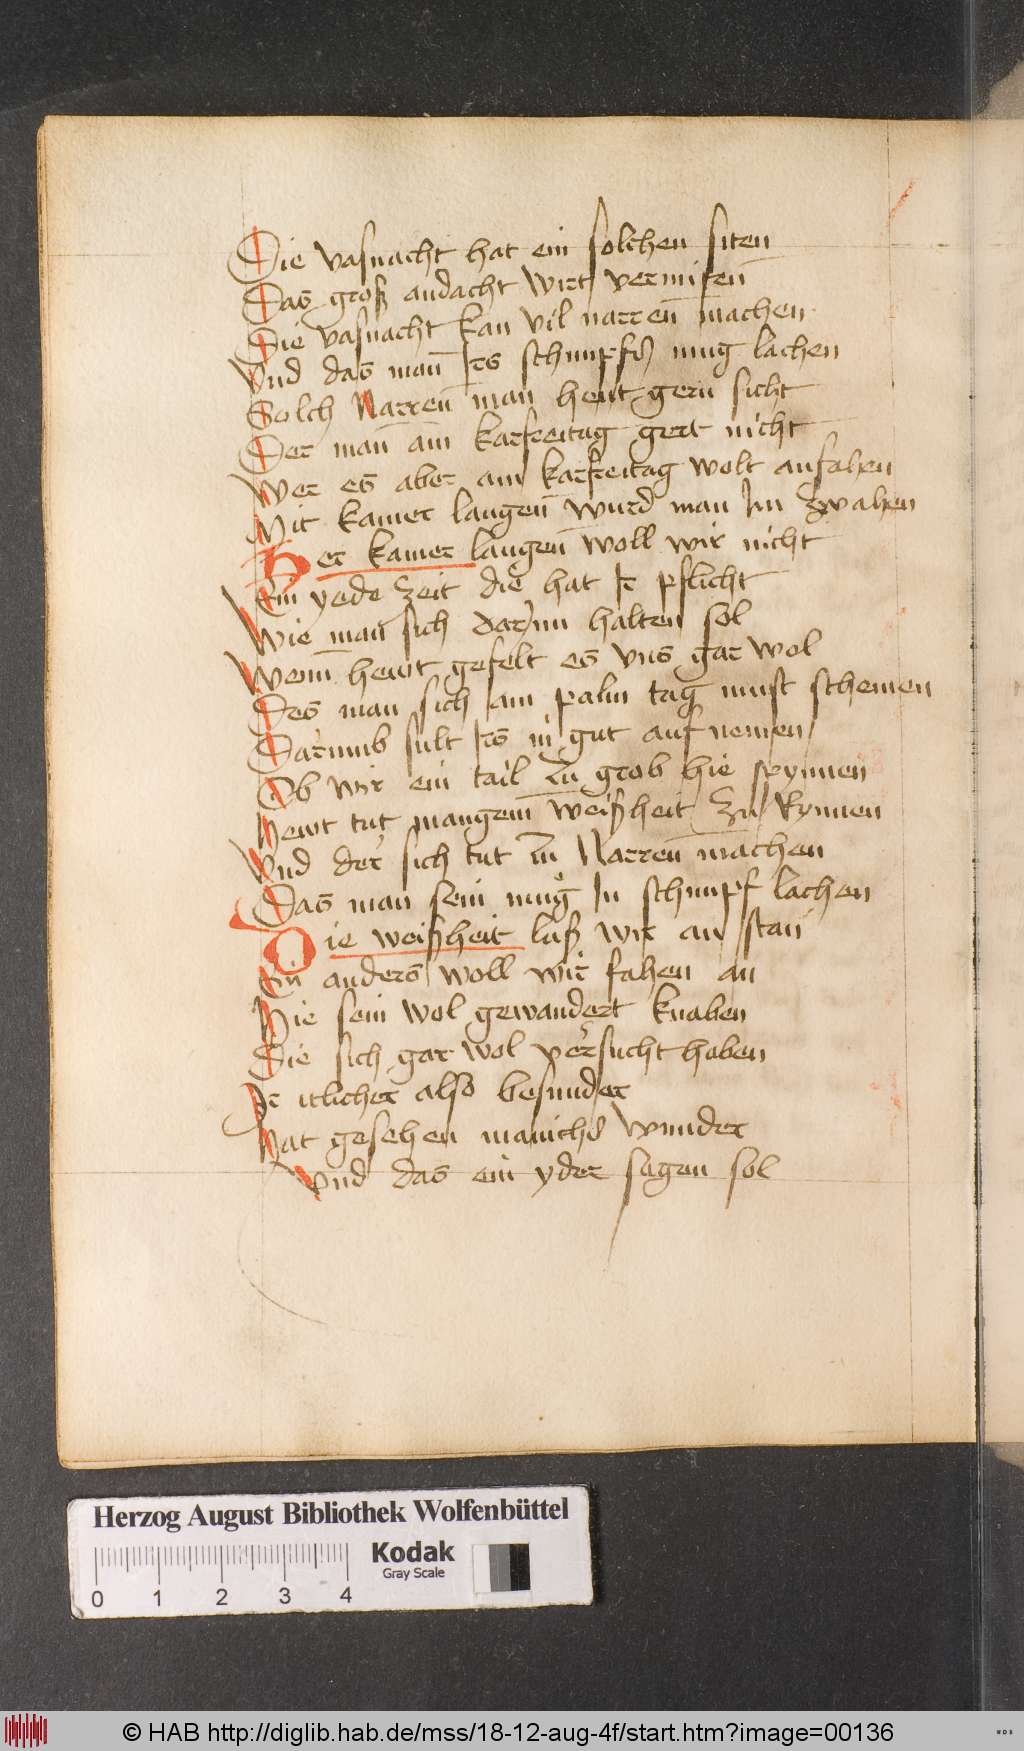 Die vasnacht hat ein solchen siten
Das groß andacht wirt vermiten
Die vasnacht kan vil narren machen
Vnd das man irs schimpfs mug lachen
Solch Narren man hewt gern sicht
Der man am karfreitag gert nicht
Wer es aber am karfreitag wolt anfahen
Mit kamer laugen wurd man Im zwahen
Der kamer laugen woll wir nicht
Ein yede zeit die hat Ir pflicht
Wie man sich darinn halten sol
Wenn hewt gefelt es vns gar wol
Des man sich am palm tag must schemen
Darumb sult Irs in gut auf nemen
Ob wir ein tail zu grob hie spynnen
Hewt tut mangem weißheit zu Rynnen
Vnd der sich tut zu Narren machen
Das man sein mug In schimpf lachen
Die weißheit laß wir an stan
Ein anders woll wir fahen an
Hie sein wol gewandert knaben
Die sich gar wol versucht haben
Ir itlicher also besunder
Hat gesehen manichs wunder
Vnd das ein yder sagen sol
Herzog August Bibliothek Wolfenbüttel
Kodak
Gray Scale
0 1 2 3 4
© HAB http://diglib.hab.de/mss/18-12-aug-4f/start.htm?image=00136